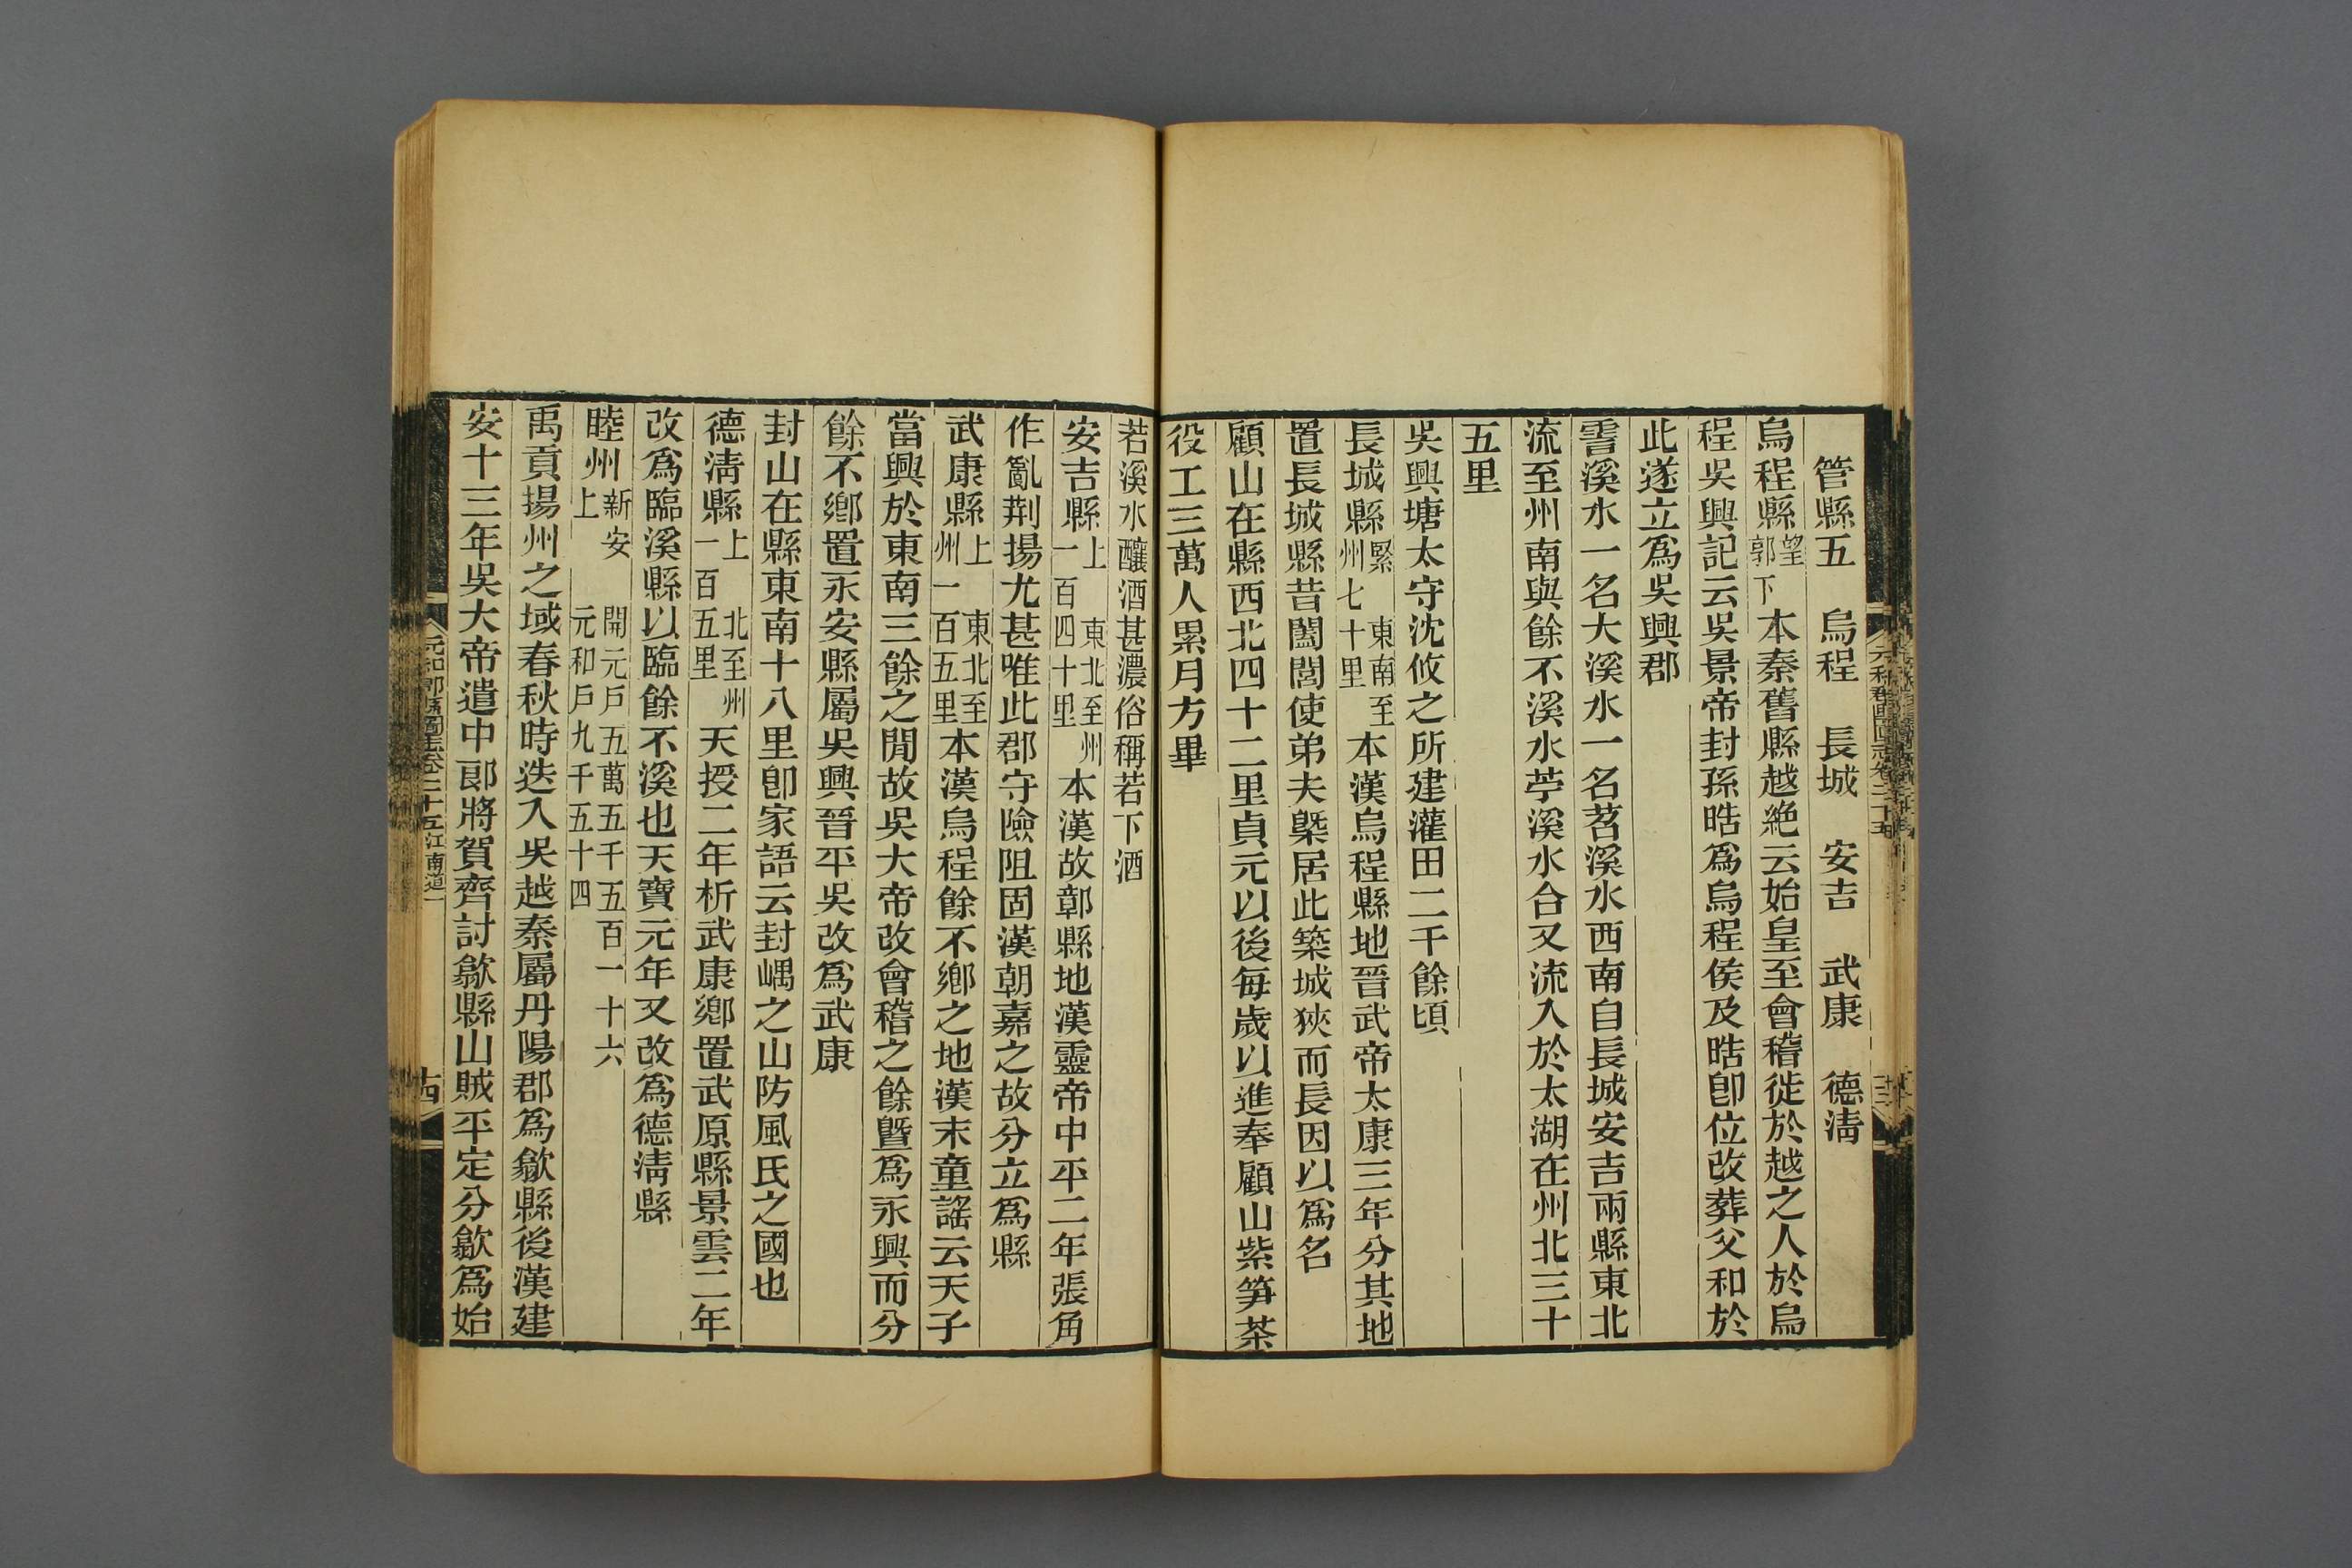 管縣五　烏程　長城　安吉　武康　德淸
烏程縣望郭下本秦舊縣越絶云始皇至會稽徙於越之人於烏
程吳興記云吳景帝封孫晧爲烏程侯及晧卽位改葬父和於
此遂立爲吳興郡
霅溪水一名大溪水一名苕溪水西南自長城安吉兩縣東北
流至州南與餘不溪水苧溪水合又流入於太湖在州北三十
五里
吳興塘太守沈攸之所建灌田二千餘頃
長城縣緊　東南至州七十里本漢烏程縣地晉武帝太康三年分其地
置長城縣昔闔閭使弟夫槩居此築城狹而長因以爲名
顧山在縣西北四十二里貞元以後每歲以進奉顧山紫笋茶
役工三萬人累月方畢
若溪水釀酒甚濃俗稱若下酒
安吉縣上　東北至州一百四十里本漢故鄣縣地漢靈帝中平二年張角
作亂荆揚尤甚唯此郡守險阻固漢朝嘉之故分立爲縣
武康縣上　東北至州一百五里本漢烏程餘不鄕之地漢末童謠云天子
當興於東南三餘之閒故吳大帝改會稽之餘曁爲永興而分
餘不鄕置永安縣屬吳興晉平吳改爲武康
封山在縣東南十八里卽家語云封嵎之山防風氏之國也
德淸縣上　北至州一百五里天授二年析武康鄕置武原縣景雲二年
改爲臨溪縣以臨餘不溪也天寶元年又改爲德淸縣
睦州新安上　開元戶五萬五千五百一十六　元和戶九千五十四
禹貢揚州之域春秋時迭入吳越秦屬丹陽郡爲歙縣後漢建
安十三年吳大帝遣中郞將賀齊討歙縣山賊平定分歙爲始
元和郡縣圖志卷二十五江南道一
十四